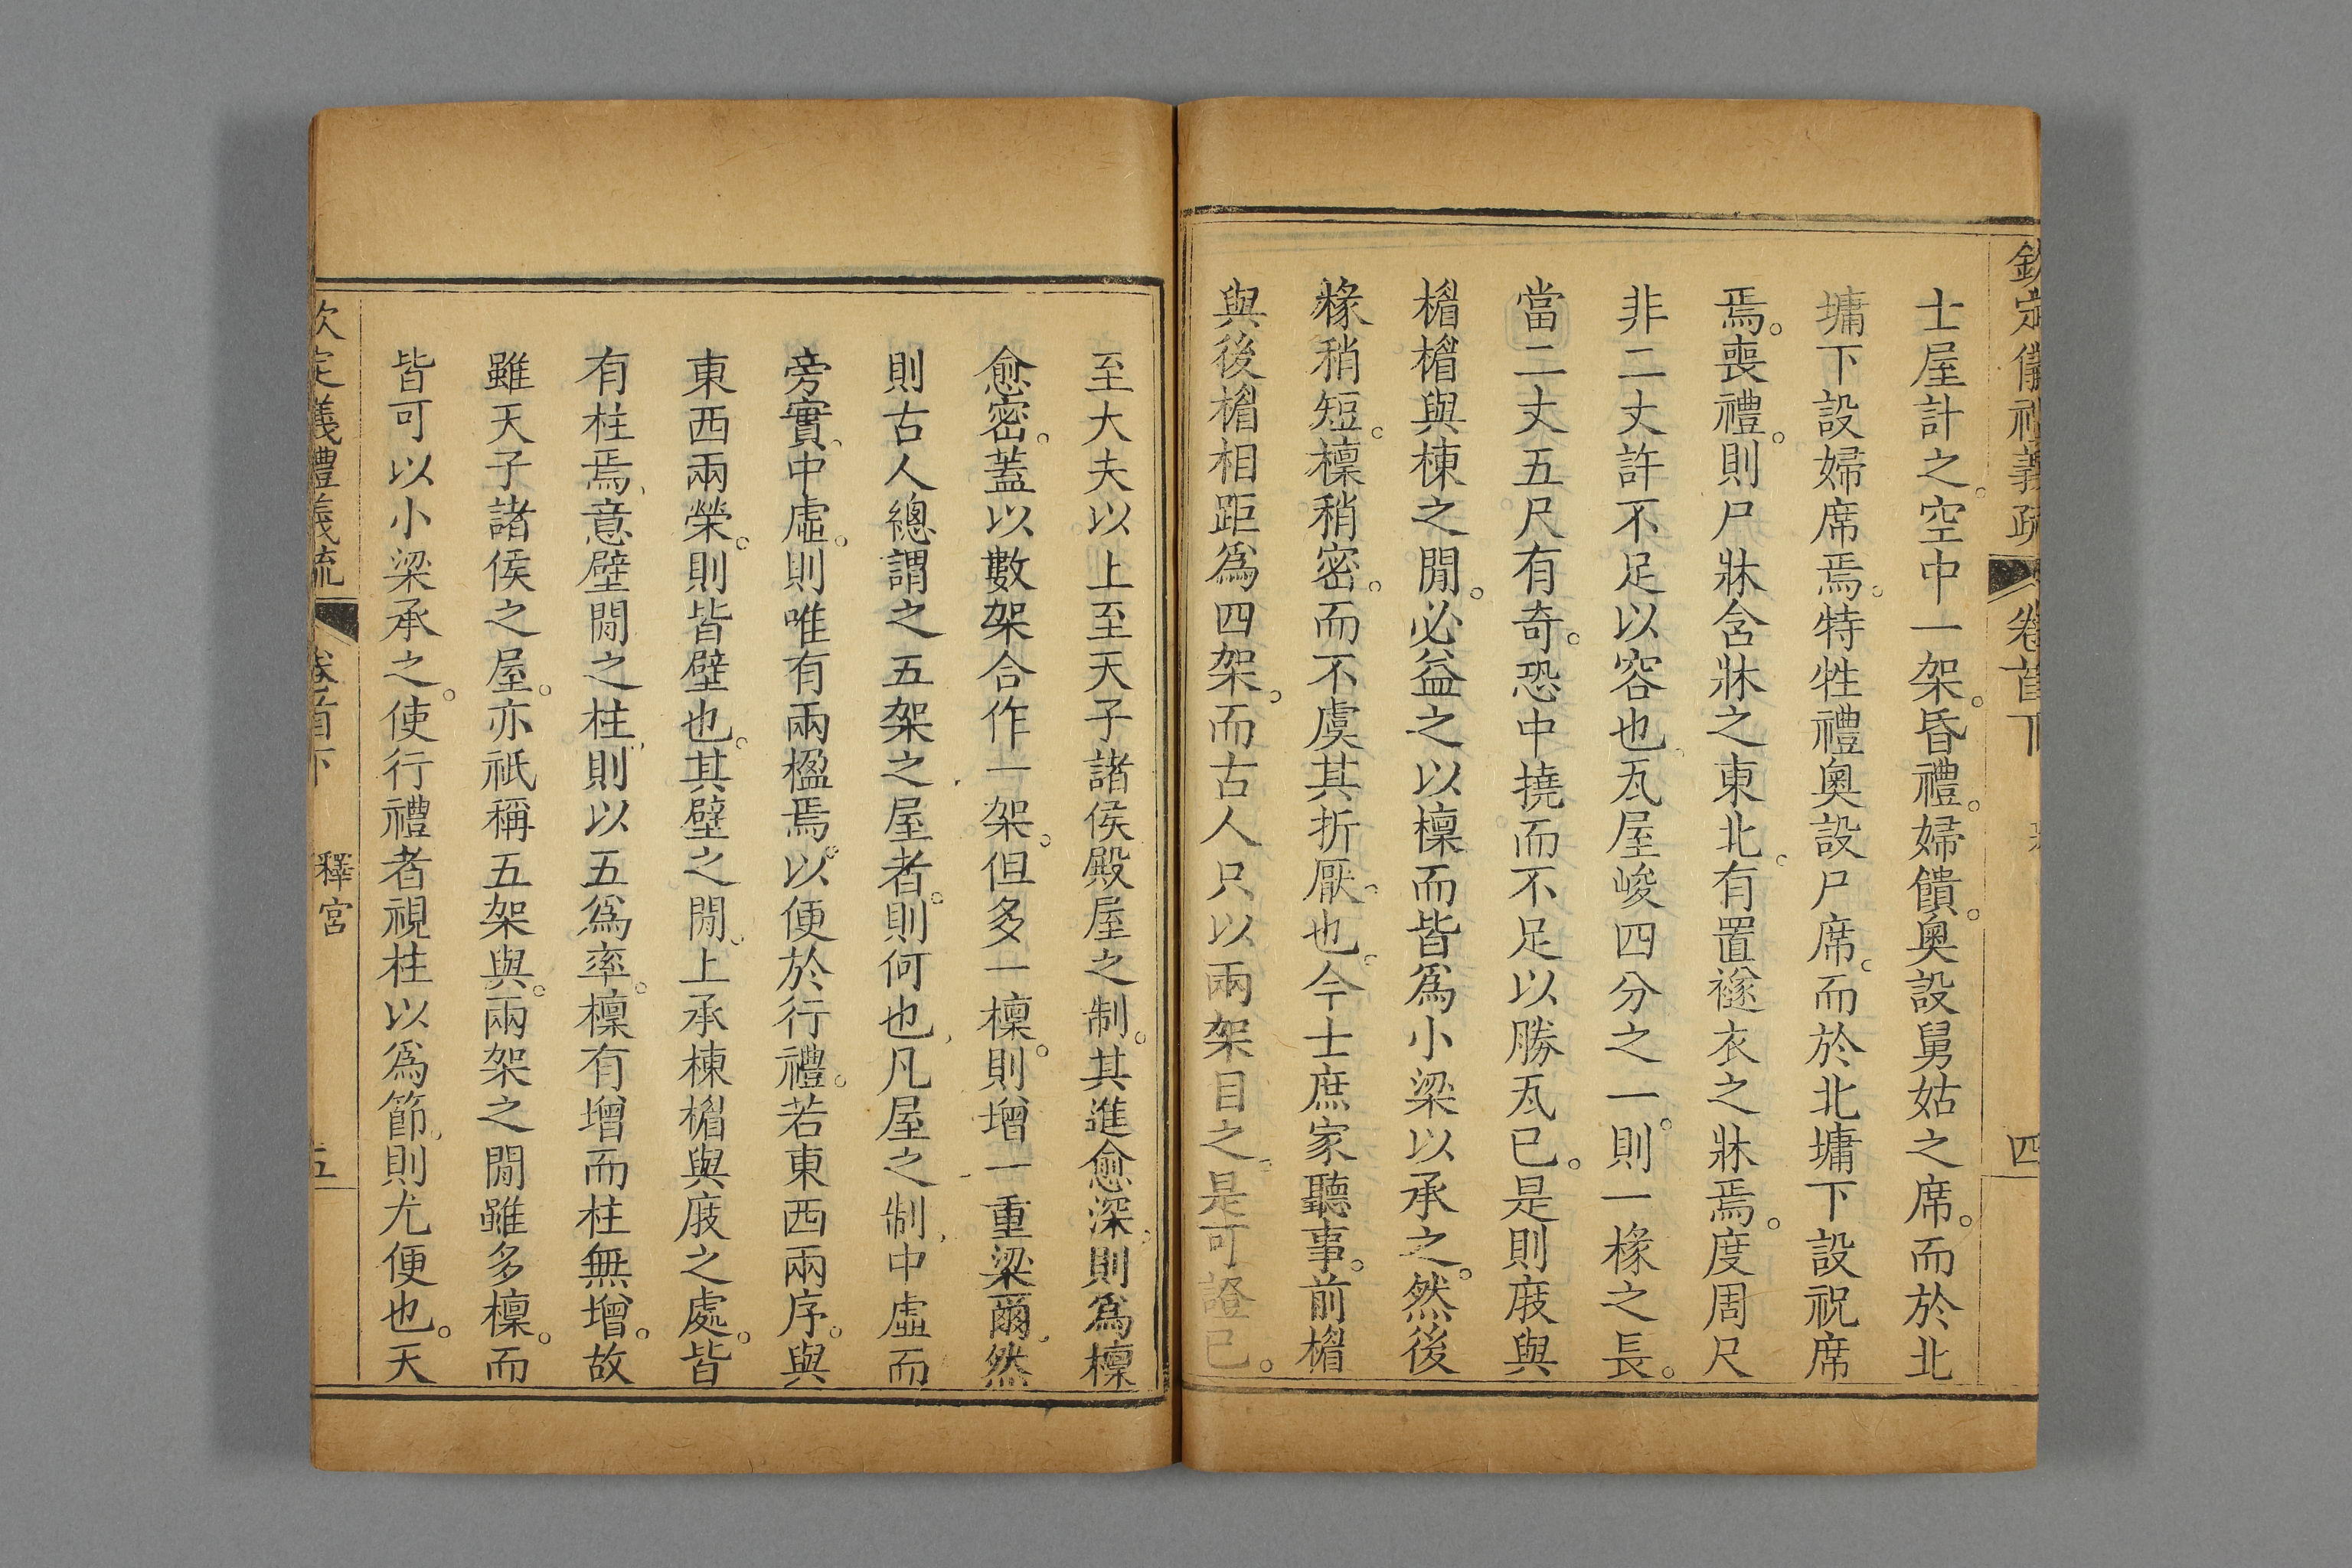 欽定儀禮義疏 卷首下 四
士屋計之。空中一架。昏禮。婦饋。奧設舅姑之席。而於北
墉下設婦席焉。特牲禮奧設尸席。而於北墉下設祝席
焉。喪禮。則尸牀含牀之東北。有置襚衣之牀焉。度周尺
非二丈許不足以容也。瓦屋峻四分之一。則一椽之長。
當二丈五尺有奇。恐中撓而不足以勝瓦已。是則庪與
楣楣與棟之閒。必益之以檁而皆爲小梁以承之。然後
椽稍短。檁稍密。而不虞其折厭。也。今士庶家聽事。前楣
與後楣相距爲四架。而古人只以兩架目之。是可證已。
至大夫以上至天子諸侯殿屋之制。其進愈深。則爲檁
愈密。蓋以數架合作一架。但多一檁。則增一重梁爾。然
則古人總謂之五架之屋者。則何也。凡屋之制。中虛而
旁實。中虛。則唯有兩楹焉。以便於行禮。若東西兩序。與
東西兩榮。則皆壁也。其壁之閒。上承棟楣與庪之處。皆
有柱焉。意壁閒之柱。則以五爲率。檁有增而柱無增。故
雖天子諸侯之屋。亦祇稱五架與。兩架之閒雖多檁。而
皆可以小梁承之。使行禮者視柱以爲節。則尤便也。天
欽定儀禮義疏 卷首下 釋宮 五